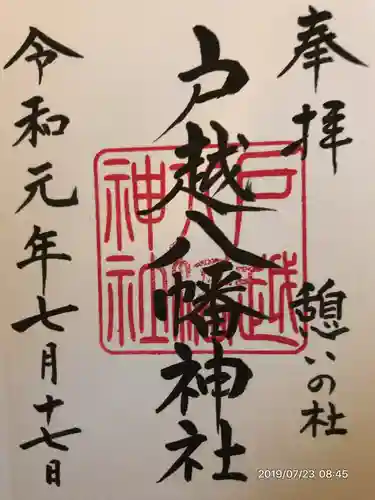 奉拝
憩いの杜
戸越八幡神社
戸越八幡神社
令和元年七月十七日
2019/07/23 08:45